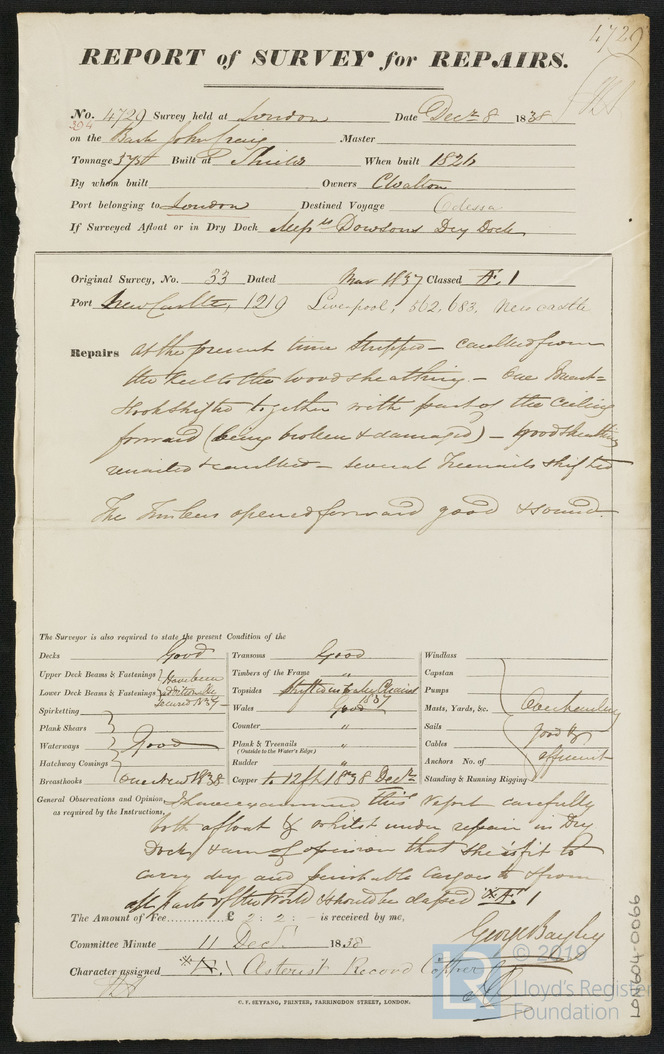 4729
REPORT of SURVEY for REPAIRS.
No. 4729 Survey held at London Date Decr 8 1838
304
on the Bark John Craig Master
Tonnage Built at Shields When built 1826
By whom built Owners C Walton
Port belonging to London Destined Voyage Odessa
If Surveyed Afloat or in Dry Dock Messrs Dowsons Dry Dock
Original Survey, No. 33 Dated Mar 1837 Classed Æ 1
Port New Castle, 1219 Liverpool, 562, 683, Newcastle
Repairs at the present time stripped - caulked from
the keel to the wood sheathing. - One Breast=
Hook shifted together with part of the ceiling
forward (being broken & damaged) - Woodsheathing
renailed & caulked - several Treenails shifted
The Timbers opened forward good & sound.
The Surveyor is also required to state the present Condition of the
Decks Good
Upper Deck Beams & Fastenings Have been
Lower Deck Beams & Fastenings additionally
secured
Spirketting
Plank Shears
Waterways Good
Hatchway Comings
Breasthooks one New 1838
Transoms Good
Timbers of the Frame "
Topsides
1837
Wales Good
Counter "
Plank & Treenails "
(Outside to the Water's Edge)
Rudder "
Copper to 12 ft 1838 Decr
Windlass
Capstan
Pumps
Masts, Yards, &c. Overhauling
Sails good &
Cables efficient
Anchors No. of
Standing & Running Rigging
General Observations and Opinion, I have examined this Vessel carefully
as required by the Instructions,
both afloat & whilst under repair in Dry
Dock, & am of opinion that she is fit to
carry dry and perishable Cargoes to & from
all parts of the World & should be classed *Æ 1
The Amount of Fee............ £ 2 : 2 : - is received by me,
George Bayley
Committee Minute 11 Decr 1838
Character assigned *Æ. 1 Asterisk Record Copper
C. F. SEYFANG, PRINTER, FARRINGDON STREET, LONDON.
LON604-0066
© 2019
Lloyd's Register
Foundation